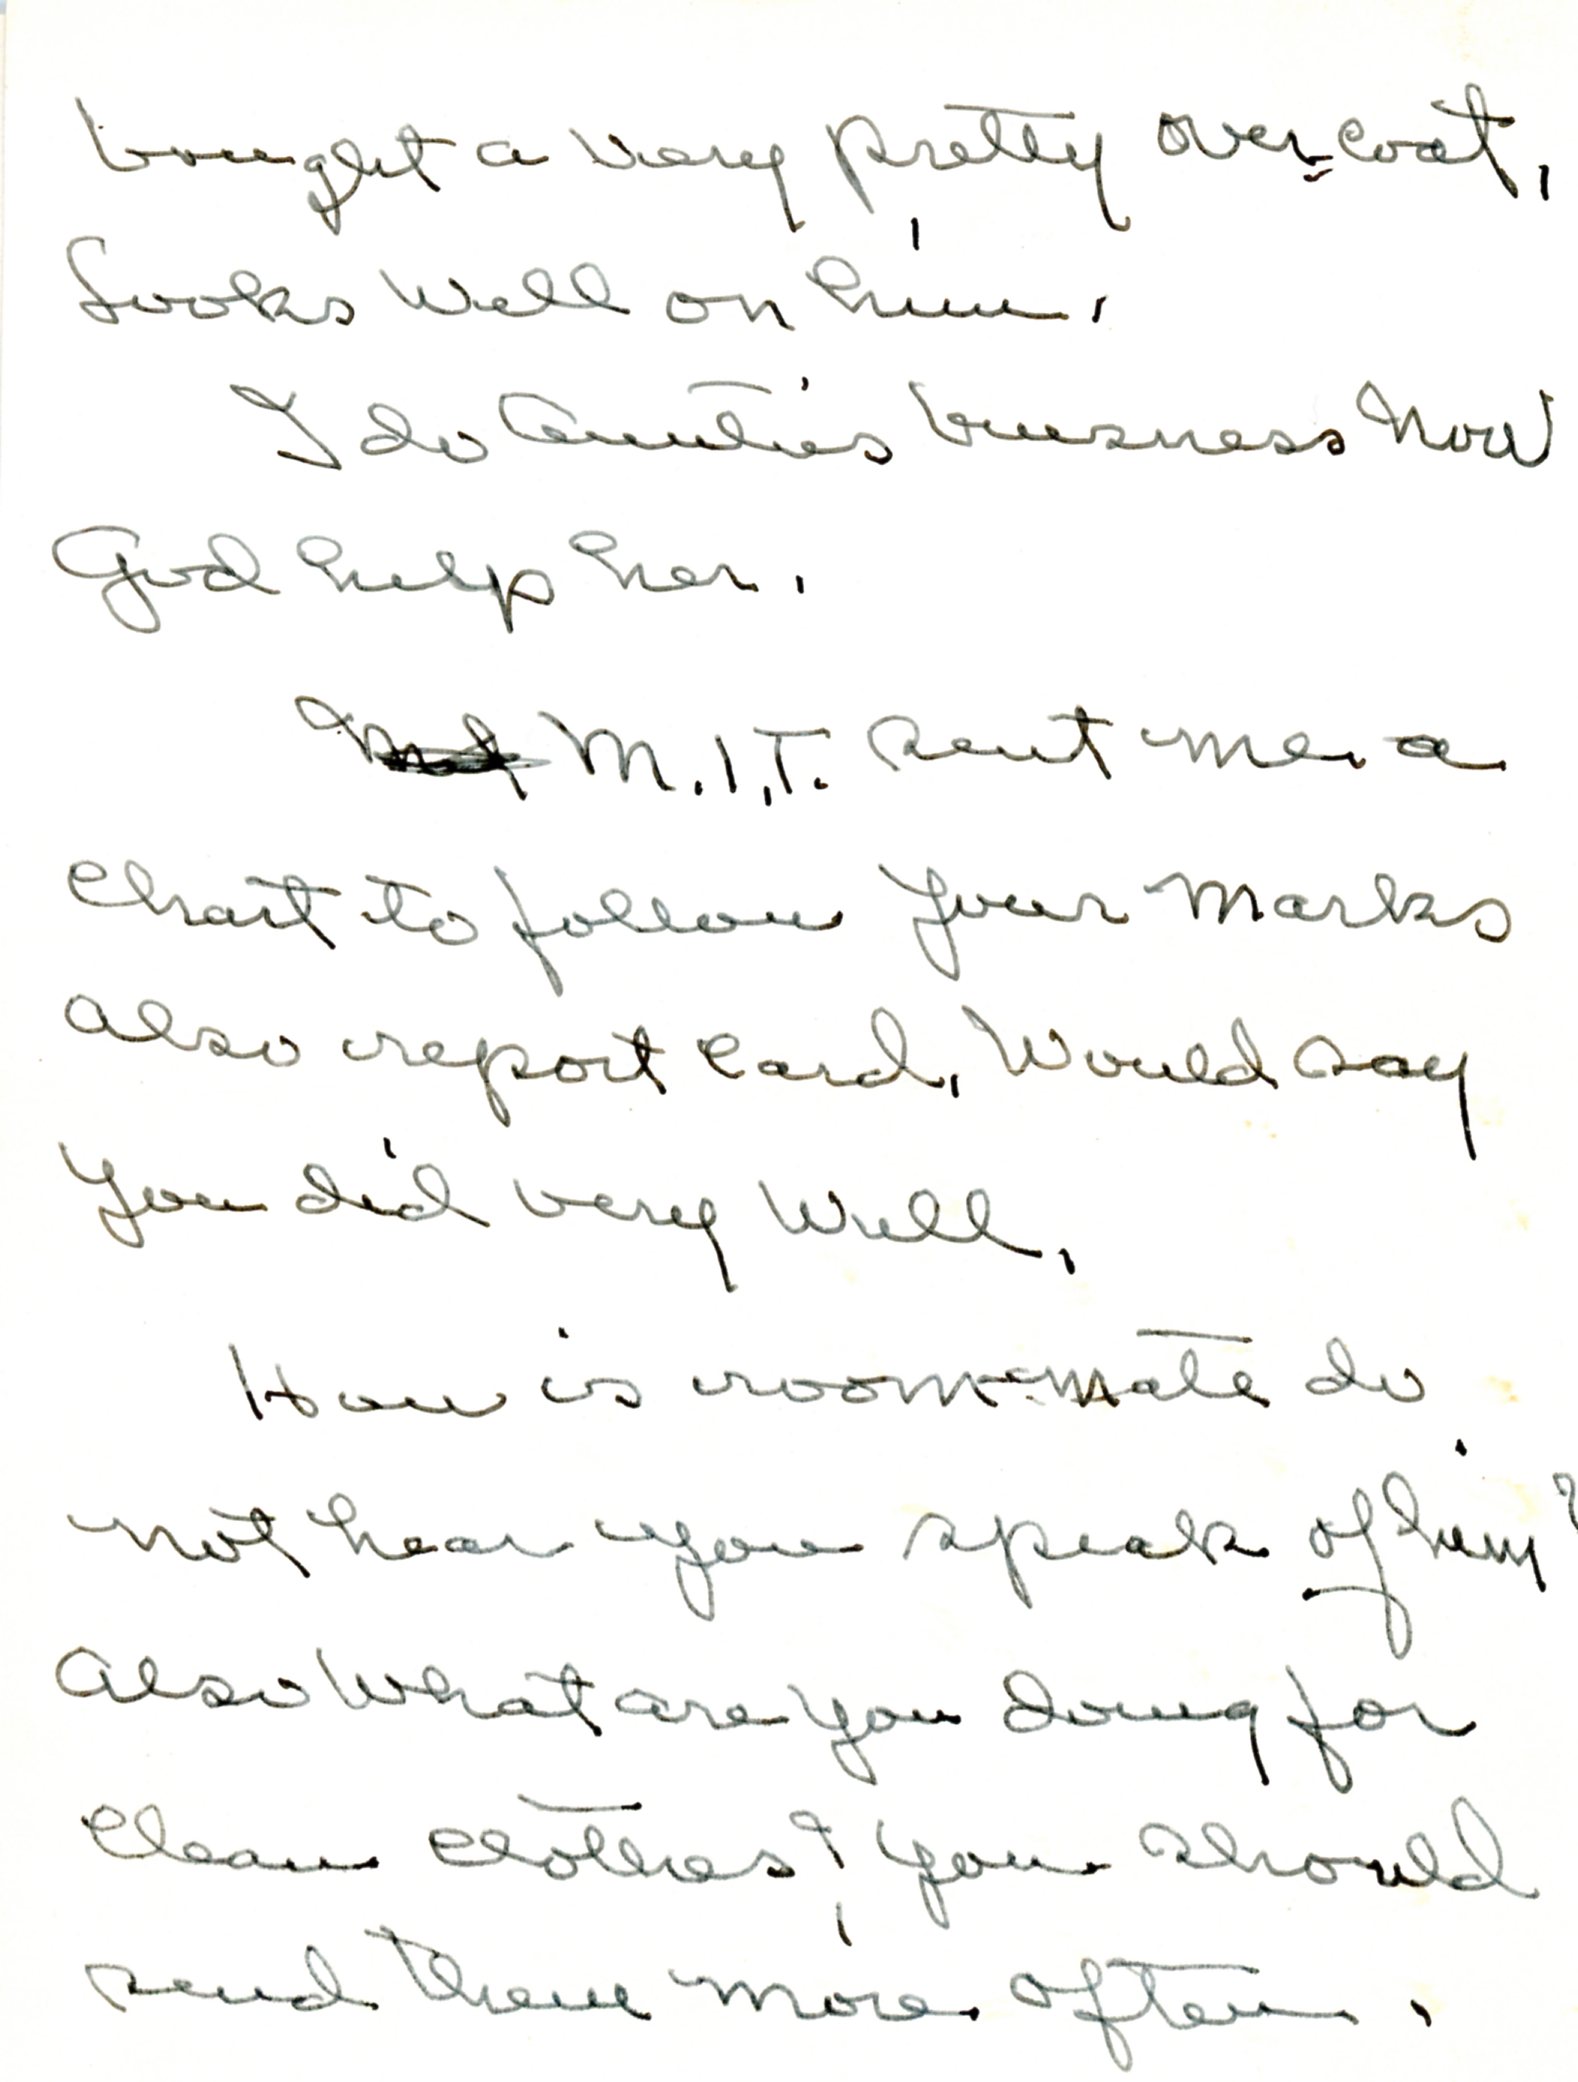 bought a very pretty over-coat,
Looks Well on him.
I do Auntie's business Now
God help her.
M.I.T. sent me a
Chart to follow your Marks
also report Card. Would say
you did very Well.
How is room-mate do
not hear you speak of him?
Also What are you doing for
Clean Clothes? You should
send them more often.